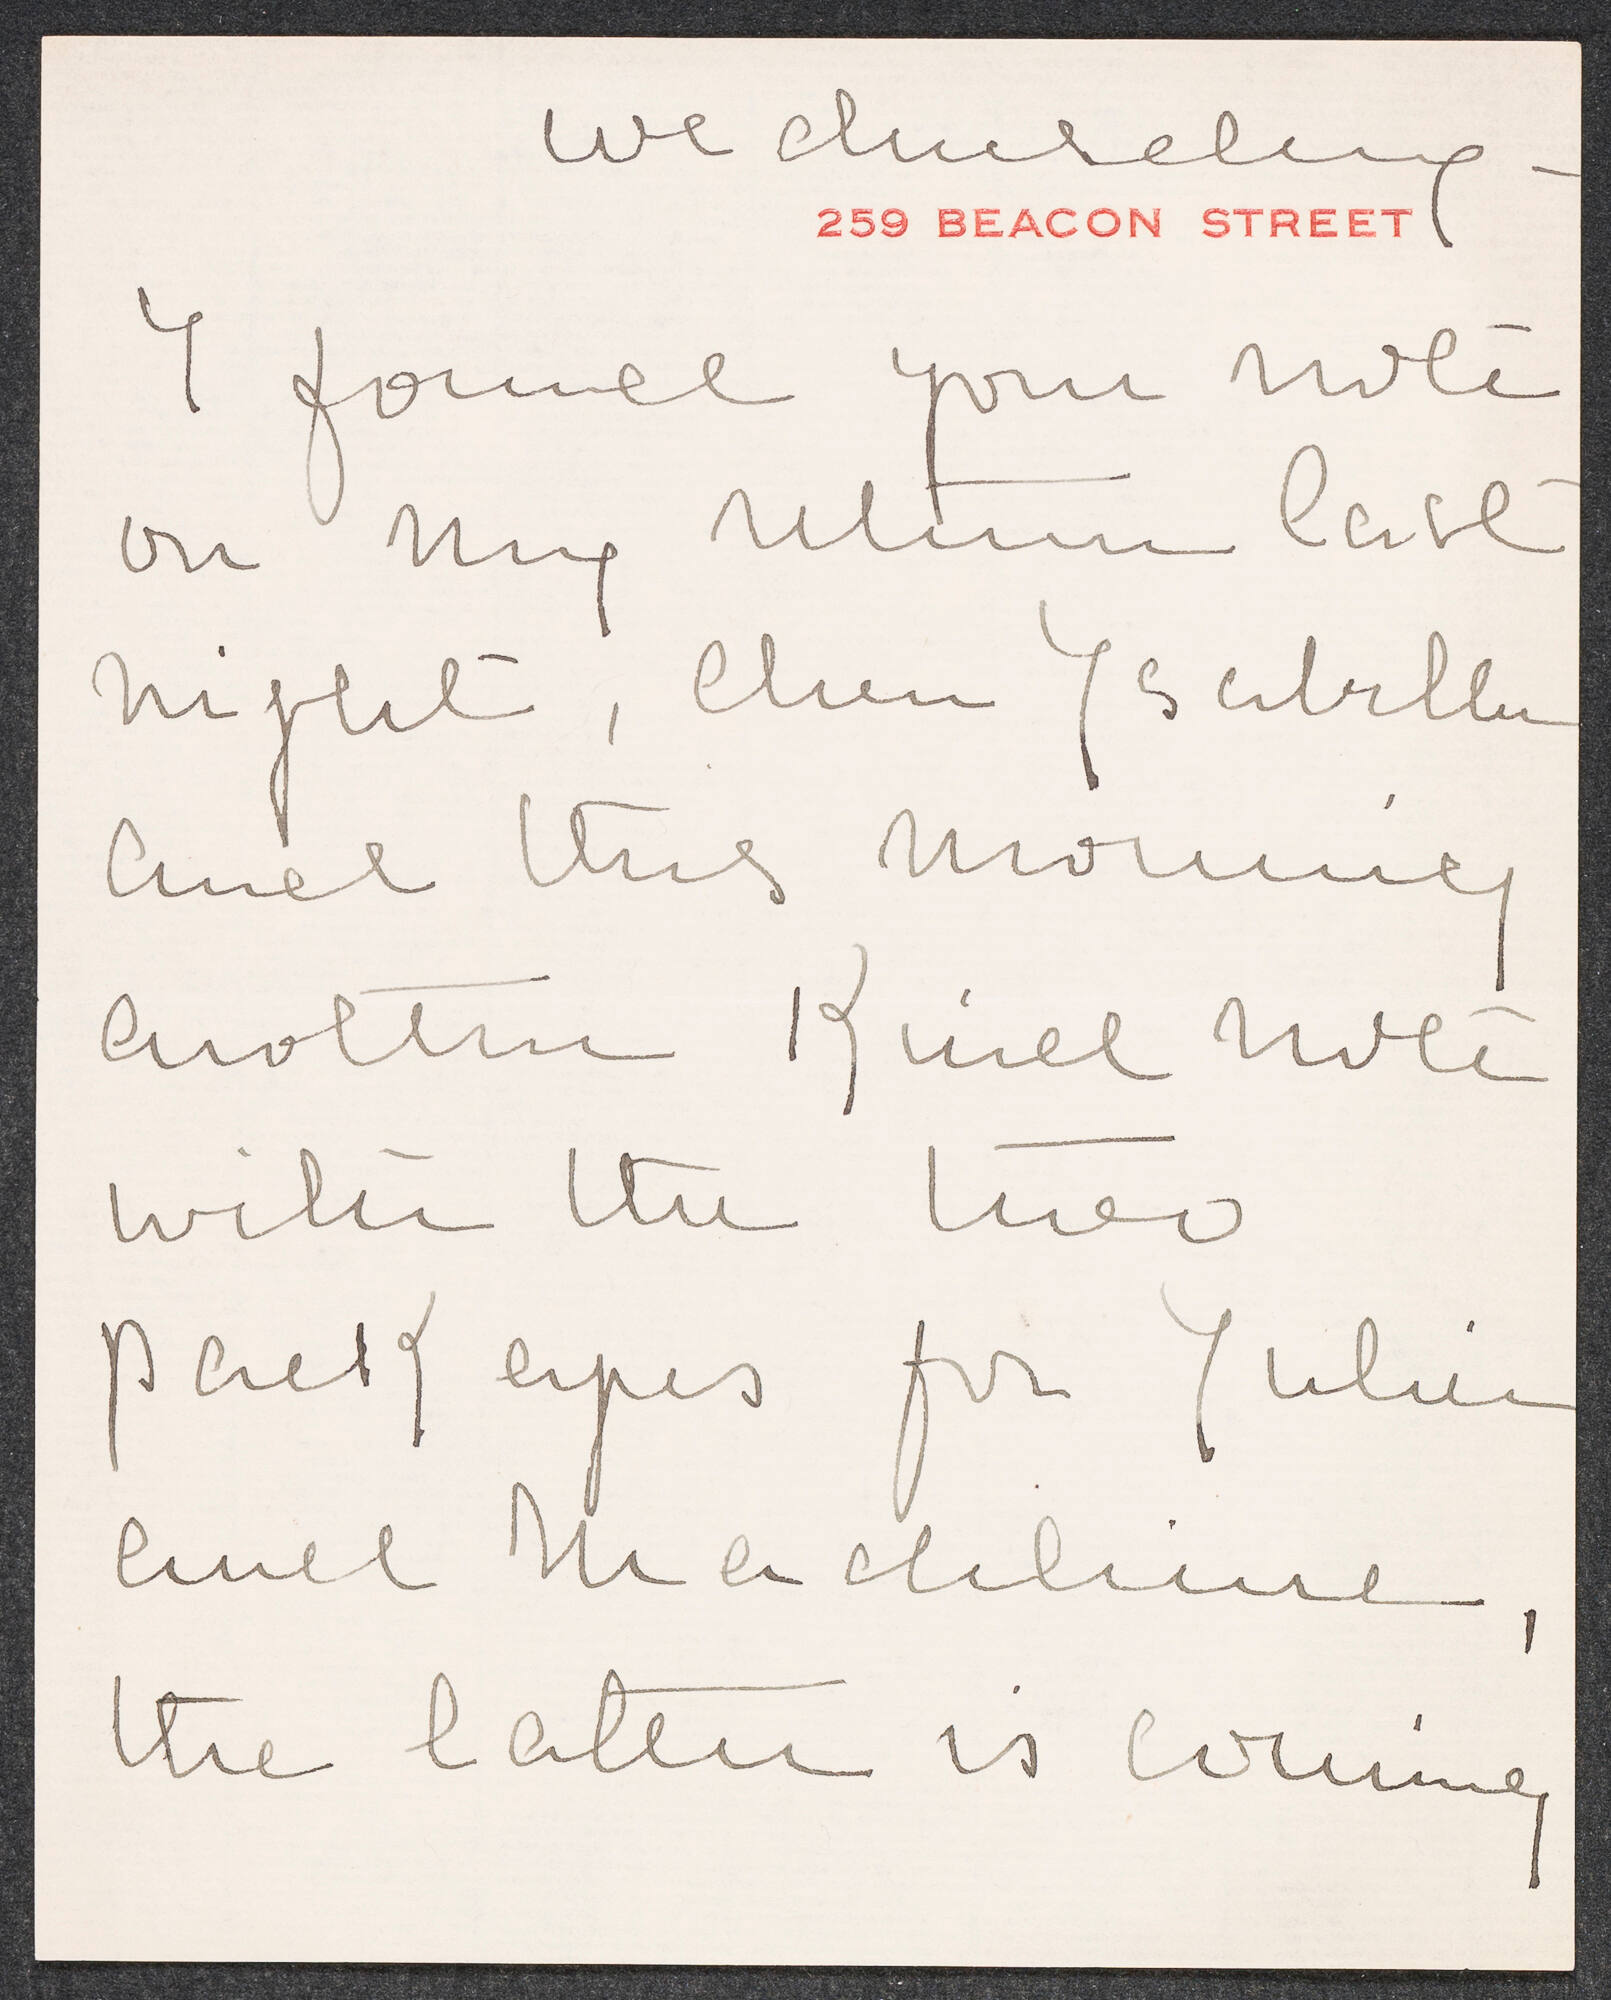 Wednesday –
259 BEACON STREET
I found your note
on my return last
night, dear Isabella
and this morning
another kind note
with the two
packages for Julia
and Madeline,
the latter is coming